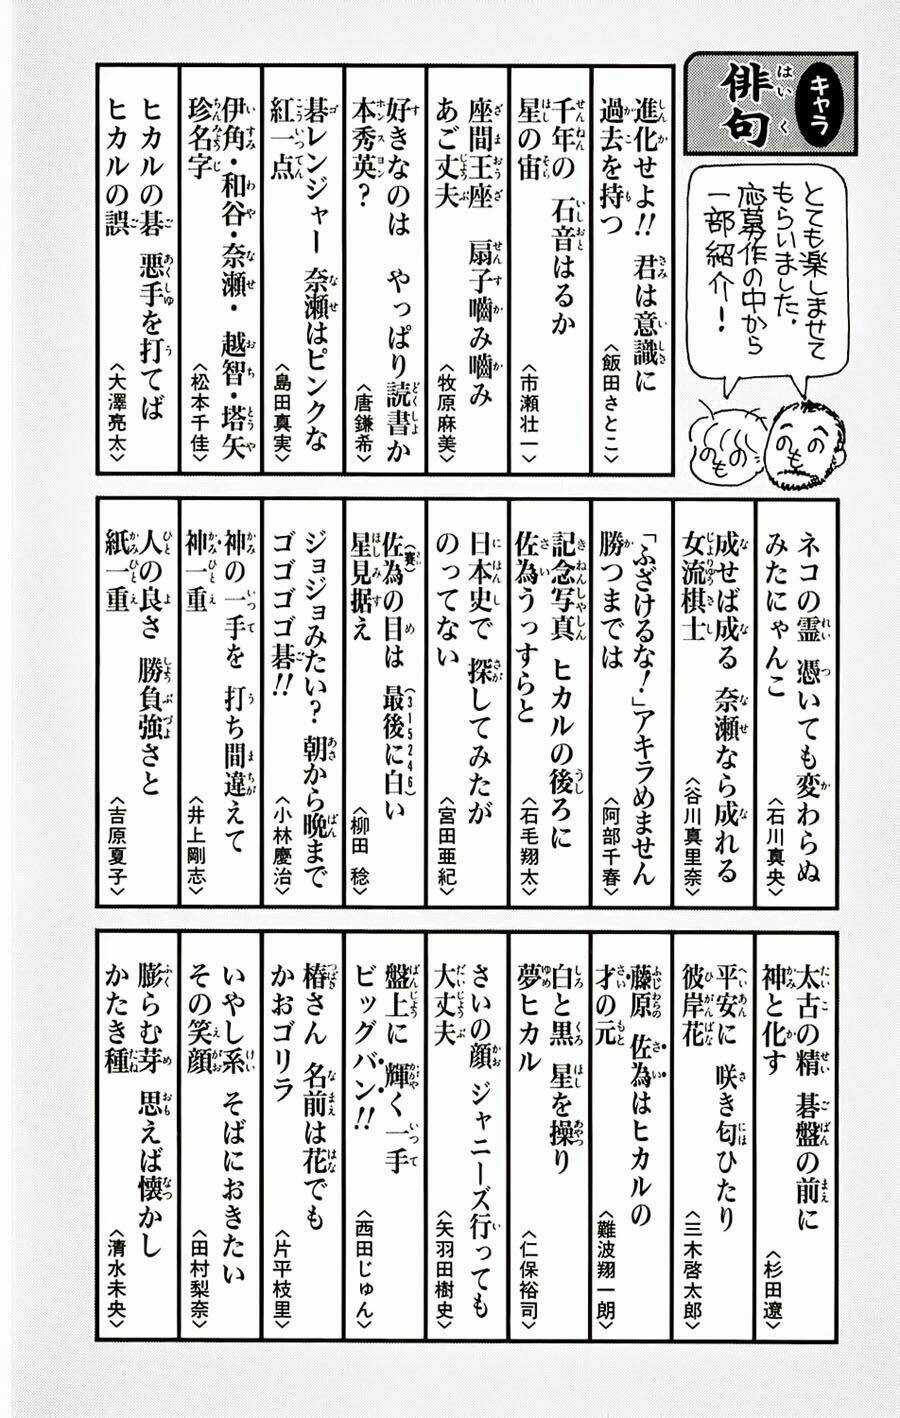 キャラ
俳句
とても楽しませて
もらいました。
応募作の中から
一部紹介!
進化せよ!! 君は意識に
過去を持つ
〈飯田さとこ〉
千年の 石音はるか
星の宙
〈市瀬壮一〉
座間王座 扇子嚙み嚙み
あご丈夫
〈牧原麻美〉
好きなのは やっぱり読書か
本秀英?
〈唐鎌希〉
碁レンジャー 奈瀬はピンクな
紅一点
〈島田真実〉
伊角・和谷・奈瀬・越智・塔矢
珍名字
〈松本千佳〉
ヒカルの碁 悪手を打てば
ヒカルの誤
〈大澤亮太〉
ネコの霊 憑いても変わらぬ
みたにゃんこ
〈石川真央〉
成せば成る 奈瀬なら成れる
女流棋士
〈谷川真里奈〉
「ふざけるな!」アキラめません
勝つまでは
〈阿部千春〉
記念写真 ヒカルの後ろに
佐為うっすらと
〈石毛翔太〉
日本史で 探してみたが
のってない
〈宮田亜紀〉
佐為(賽)の目は 最後に白い(315246)
星見据え
〈柳田 稔〉
ジョジョみたい? 朝から晩まで
ゴゴゴゴ碁!!
〈小林慶治〉
神の一手を 打ち間違えて
神一重
〈井上剛志〉
人の良さ 勝負強さと
紙一重
〈吉原夏子〉
太古の精 碁盤の前に
神と化す
〈杉田遼〉
平安に 咲き匂ひたり
彼岸花
〈三木啓太郎〉
藤原 佐為はヒカルの
才の元
〈難波翔一朗〉
白と黒 星を操り
夢ヒカル
〈仁保裕司〉
さいの顔 ジャニーズ行っても
大丈夫
〈矢羽田樹史〉
盤上に 輝く一手
ビッグバン!!
〈西田じゅん〉
椿さん 名前は花でも
かおゴリラ
〈片平枝里〉
いやし系 そばにおきたい
その笑顔
〈田村梨奈〉
膨らむ芽 思えば懐かし
かたき種
〈清水未央〉